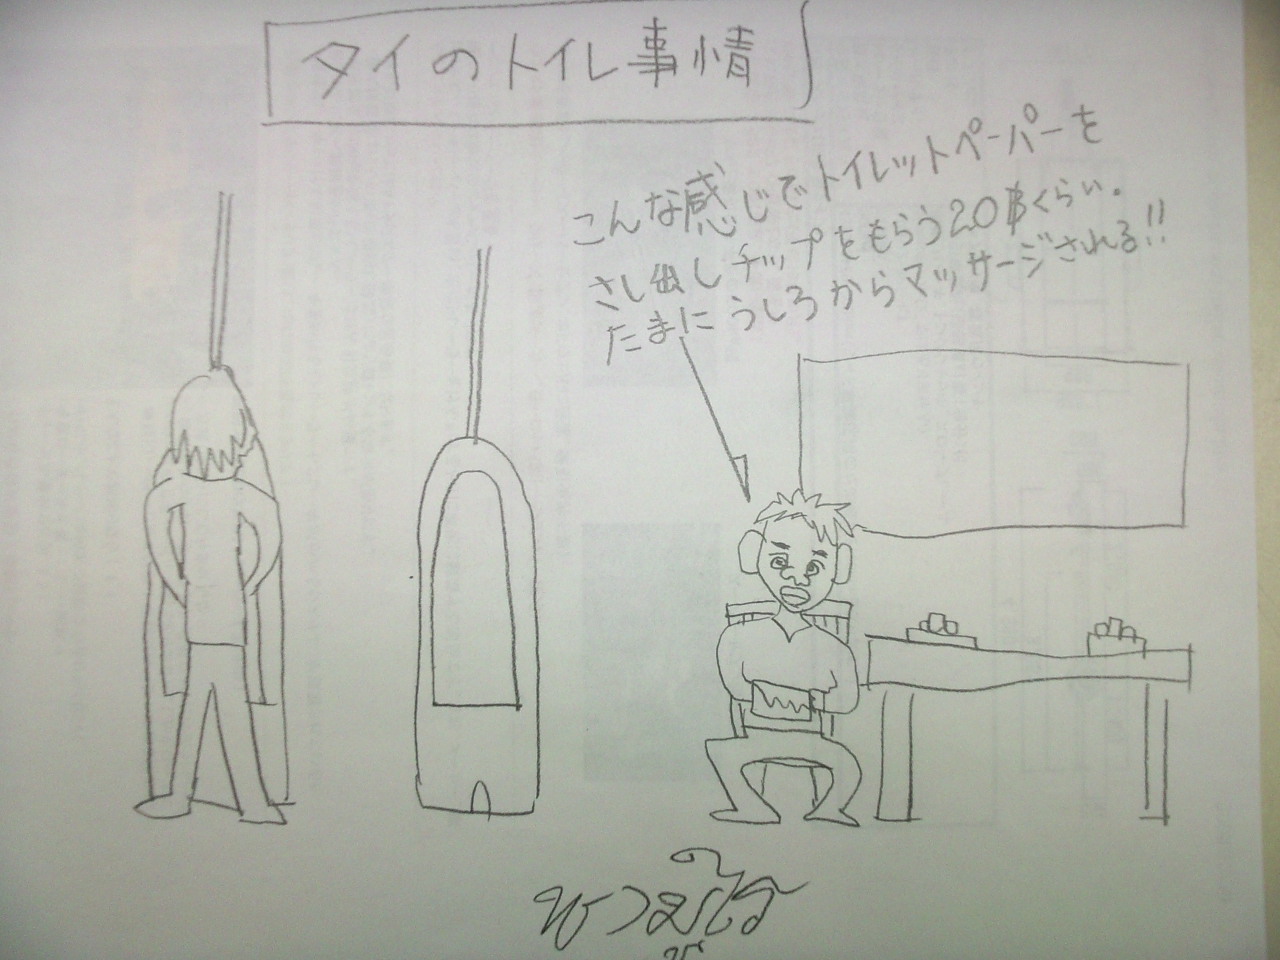 タイのトイレ事情
こんな感じでトイレットペーパーを
さし出しチップをもらう20฿くらい。
たまにうしろからマッサージされる!!